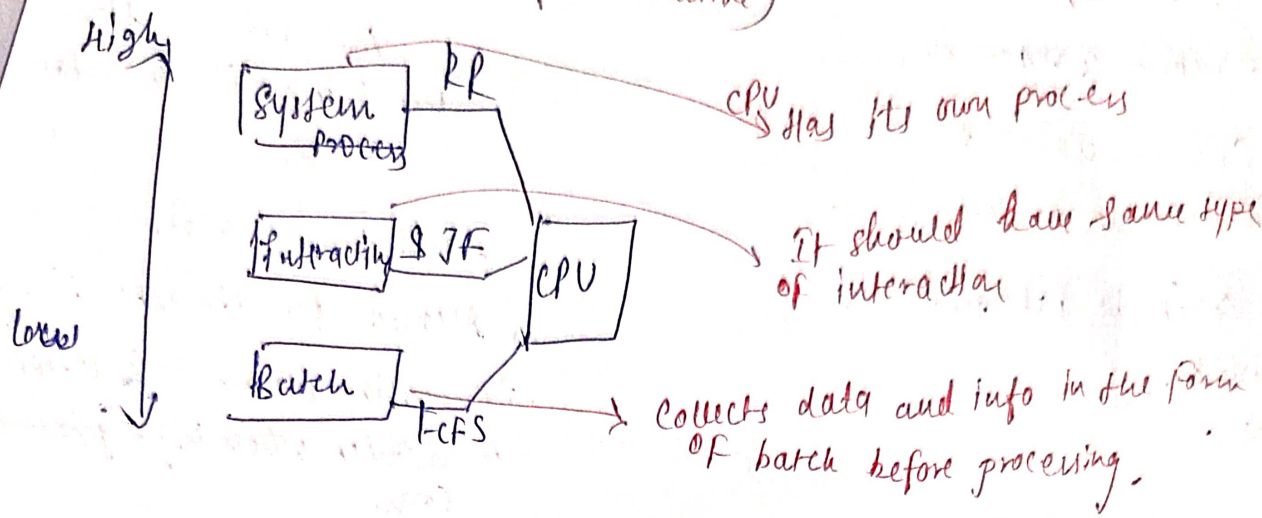 High
RR
System
Process
CPU
Has its own process
Interactin
SJF
CPU
It should have same type
of interaction.
Low
Batch
FCFS
Collects data and info in the form
OF batch before processing.